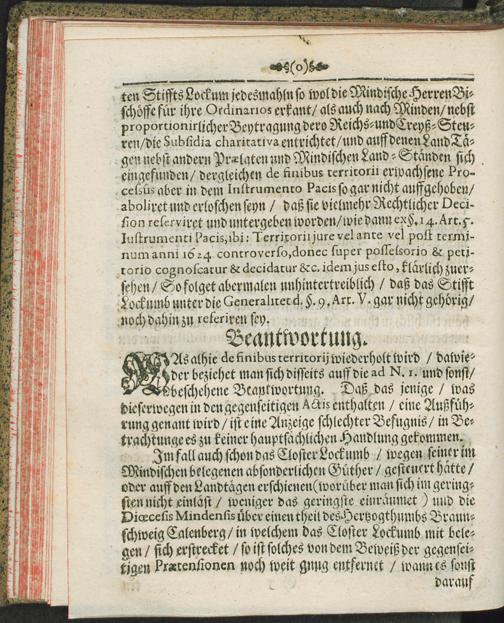 (o)
ten Stiffts Lockum jedesmahln so wol die Mindische Herren Bi-
schöffe für ihre Ordinarios erkant/ als auch nach Minden/ nebst
proportionirlicher Beytragung dero Reichs- und Creyß-Steu-
ren/ die Subsidia charitativa entrichtet/ und auff denen Land Tä-
gen nebst andern Prælaten und Mindischen Land-Ständen sich
eingefunden/ dergleichen de finibus territorii erwachsene Pro-
cessus aber in dem Instrumento Pacis so gar nicht auffgehoben/
aboliret und erloschen seyn / daß sie vielmehr Rechtlicher Deci-
sion reserviret und untergeben worden/ wie dann ex §. 14. Art. 5.
Iustrumenti Pacis, ibi: Territorii jure vel ante vel post termi-
num anni 1624 controverso, donec super possessorio & peti-
torio cognoscatur & decidatur &c. idem jus esto, klärlich zuer-
sehen/ So folget abermalen unhintertreiblich / daß das Stifft
Lockumb unter die Generalitet d. §. 9. Art. V. gar nicht gehörig/
noch dahin zu referiren sey.
Beantwortung.
WAs alhie de finibus territorij wiederholt wird / dawie-
der beziehet man sich disseits auff die ad N. 1. und sonst/
beschehene Beantwortung. Daß das jenige / was
dieserwegen in den gegenseitigen Actis enthalten / eine Außfüh-
rung genant wird / ist eine Anzeige schlechter Befugnis / in Be-
trachtunge es zu keiner hauptsächlichen Handlung gekommen.
Im fall auch schon das Closter Lockumb / wegen seiner im
Mindischen belegenen absonderlichen Güther / gesteuert hätte/
oder auff den Landtägen erschienen (worüber man sich im gering-
sten nicht einläst / weniger das geringste einräumet ) und die
Diœcesis Mindensis über einen theil des Hertzogthumbs Braun-
schweig Calenberg/ in welchem das Closter Lockumb mit bele-
gen / sich erstrecket / so ist solches von dem Beweiß der gegensei-
tigen Prætensionen noch weit gnug entfernet / wann es sonst
darauf